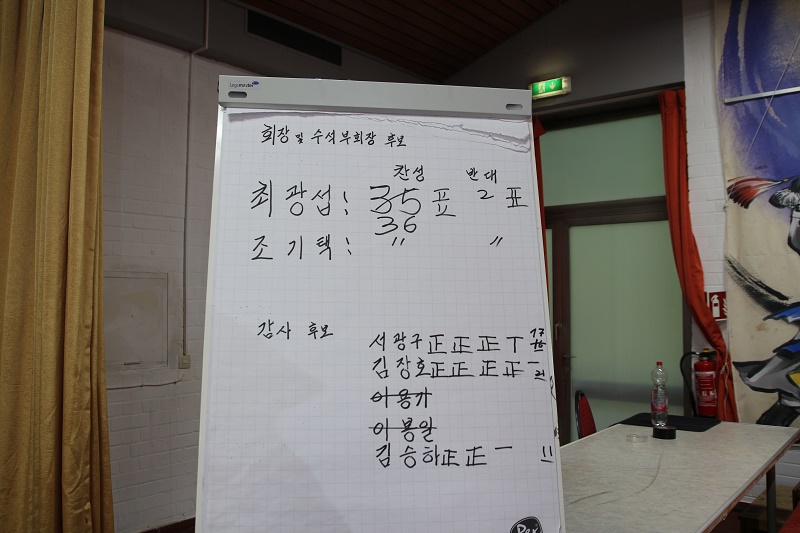 Legamaster
회장 및 수석부회장 후보
찬성 반대
최광섭: 35표 2표
36
조기택: 〃 〃
감사 후보
서광구 正 正 正 丅 17
김장호 正 正 正 正 一 21
이용가
이용일
김승하 正 正 一 11